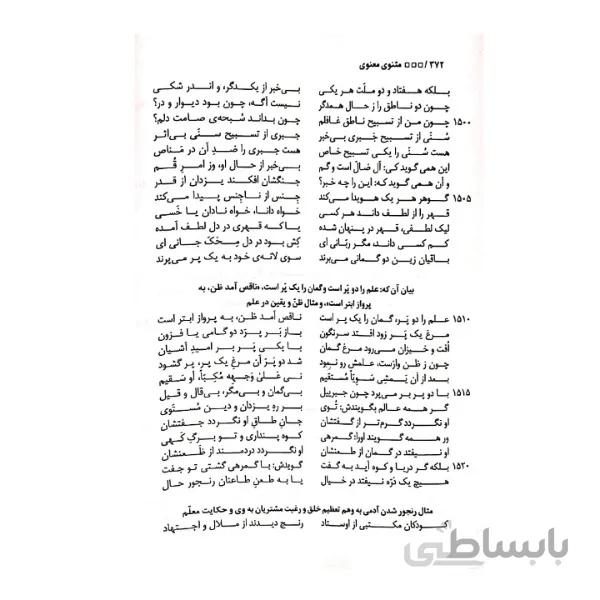 ۳۷۲ / □□□ مثنوی معنوی
بـلکه هفتاد و دو ملّت هر یکی بی‌خبر از یکدگر، و اندر شکی
چون دو ناطق را ز حال همدگر نیست آگه، چون بود دیوار و در؟
۱۵۰۰ چون من از تسبیح ناطق غافلم چون بداند سُبحه‌ی صامت دلم؟
سُنّی از تسبیح جَبری بی‌خبر جبری از تسبیح سنّی بی‌اثر
هست سُنّی را یکی تسبیح خاص هست جبری را ضدِ آن در مَناص
این همی گوید کی: آن ضالّ است و گم بی‌خبر از حال او، وز امرِ قُم
و آن همی گوید که: این را چه خبر؟ جنگشان افکند یزدان از قدر
۱۵۰۵ گوهر هر یک هویدا می‌کند جنس از ناجنس پیدا می‌کند
قهر را از لطف داند هر کسی خواه دانا، خواه نادان یا خَسی
لیک لطفی، قهر در پنهان شده یا که قهری در دل لطف آمده
کم کسی داند، مگر ربّانی ای کِش بود در دل مِحَکّ جانی ای
باقیان زین دو گمانی می‌برند سوی لانه‌ی خود به یک پر می‌پرند
بیان آن که: علم را دو پر است و گمان را یک پَر است، «ناقص آمد ظن، به
پرواز ابتر است»، و مثال ظنّ و یقین در علم
۱۵۱۰ علم را دو پَر، گمان را یک پر است ناقص آمد ظن، به پرواز ابتر است
مرغ یک پر زود افتد سرنگون باز بر پرّد دو گامی یا فزون
اُفت و خیزان می‌رود مرغ گمان با یکی پَر بر امیدِ آشیان
چون ز ظن وارَست، علمش رو نمود شد دو پَر آن مرغِ یک پر، پر گشود
بعد از آن یَمشی سَوِیّاً مُستقیم نی عَلیٰ وَجهِهِ مُکِبّاً، اَو سَقیم
۱۵۱۵ با دو پر بر می‌پرد چون جبرییل بی‌گمان و بی‌مگر، بی‌قال و قیل
گر همه عالم بگویندش: تُوی بر رهِ یزدان و دین مُستَوی
او نگردد گرم‌تر از گفتشان جانِ طاقِ او نگردد جفتشان
ور همه گویند اورا: گمرهی کوه پنداری و تو برگِ کَهی
او نیفتد در گمان از طعنشان او نگردد دردمند از ظَعنشان
۱۵۲۰ بلکه گر دریا و کوه آید به گفت گویدش: با گمرهی گشتی تو جفت
هیچ یک ذرّه نیفتد در خیال یا به طعنِ طاعنان رنجور حال
مثال رنجور شدن آدمی به وهم تعظیم خلق و رغبت مشتریان به وی و حکایت معلّم
کودکان مکتبی از اوستاد رنج دیدند از ملال و اجتهاد
باباسطی